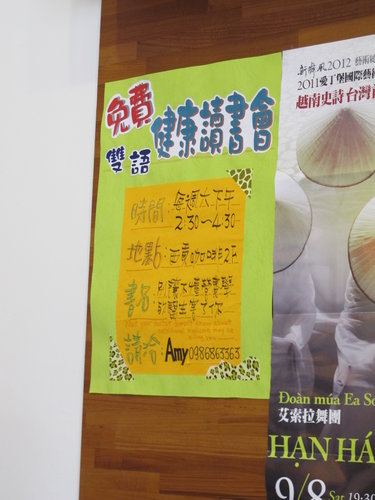 免費
雙語
健康讀書會
時間:每週六下午
2:30~4:30
地點:西雅咖啡2F
書名:別讓不懂營養學
的醫生害了你
What your doctor doesn't know about
nutritional medicine may be
killing you
請洽:Amy 0986863363
新舞風2012
2011愛丁堡國際藝
越南史詩 台灣
Đoàn múa Ea So
艾索拉舞團
HẠN HÁ
9/8 Sat 19:30